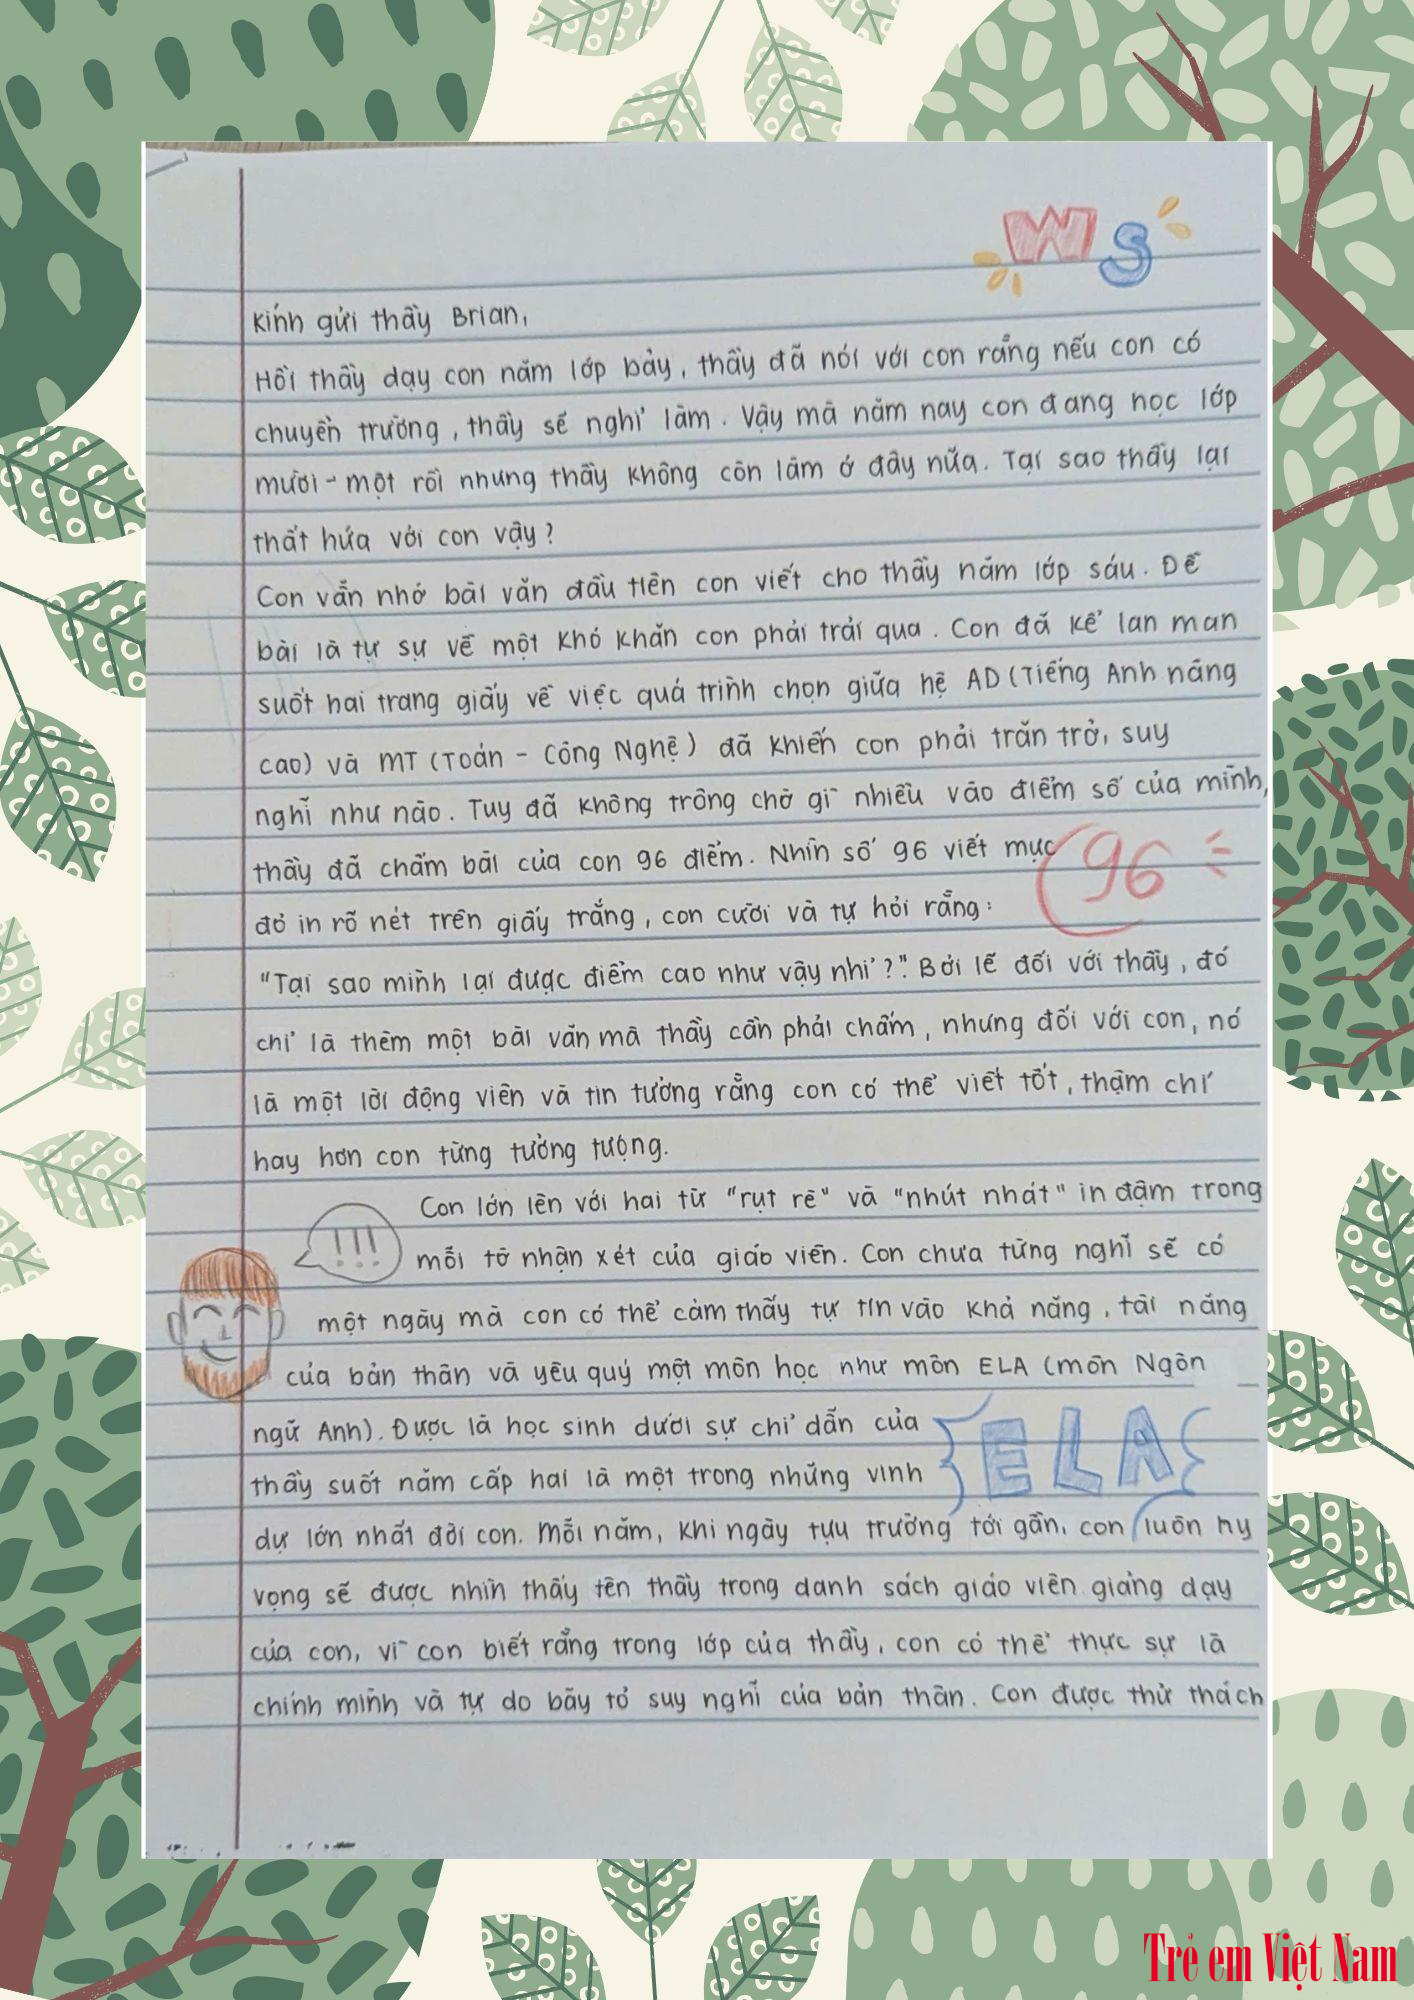 WS
Kính gửi thầy Brian,
Hồi thầy dạy con năm lớp bảy, thầy đã nói với con rằng nếu con có
chuyển trường, thầy sẽ nghỉ làm. Vậy mà năm nay con đang học lớp
mười-một rồi nhưng thầy không còn làm ở đây nữa. Tại sao thầy lại
thất hứa với con vậy?
Con vẫn nhớ bài văn đầu tiên con viết cho thầy năm lớp sáu. Đề
bài là tự sự về một khó khăn con phải trải qua. Con đã kể lan man
suốt hai trang giấy về việc quá trình chọn giữa hệ AD (Tiếng Anh nâng
cao) và MT (Toán - Công Nghệ) đã khiến con phải trăn trở, suy
nghĩ như nào. Tuy đã không trông chờ gì nhiều vào điểm số của mình,
thầy đã chấm bài của con 96 điểm. Nhìn số 96 viết mực
96
đỏ in rõ nét trên giấy trắng, con cười và tự hỏi rằng:
"Tại sao mình lại được điểm cao như vậy nhỉ?". Bởi lẽ đối với thầy, đó
chỉ là thêm một bài văn mà thầy cần phải chấm, nhưng đối với con, nó
là một lời động viên và tin tưởng rằng con có thể viết tốt, thậm chí
hay hơn con từng tưởng tượng.
Con lớn lên với hai từ "rụt rè" và "nhút nhát" in đậm trong
!!!
mỗi tờ nhận xét của giáo viên. Con chưa từng nghĩ sẽ có
một ngày mà con có thể cảm thấy tự tin vào khả năng, tài năng
của bản thân và yêu quý một môn học như môn ELA (môn Ngôn
ngữ Anh). Được là học sinh dưới sự chỉ dẫn của
ELA
thầy suốt năm cấp hai là một trong những vinh
dự lớn nhất đời con. Mỗi năm, khi ngày tựu trường tới gần, con luôn hy
vọng sẽ được nhìn thấy tên thầy trong danh sách giáo viên giảng dạy
của con, vì con biết rằng trong lớp của thầy, con có thể thực sự là
chính mình và tự do bày tỏ suy nghĩ của bản thân. Con được thử thách
Trẻ em Việt Nam